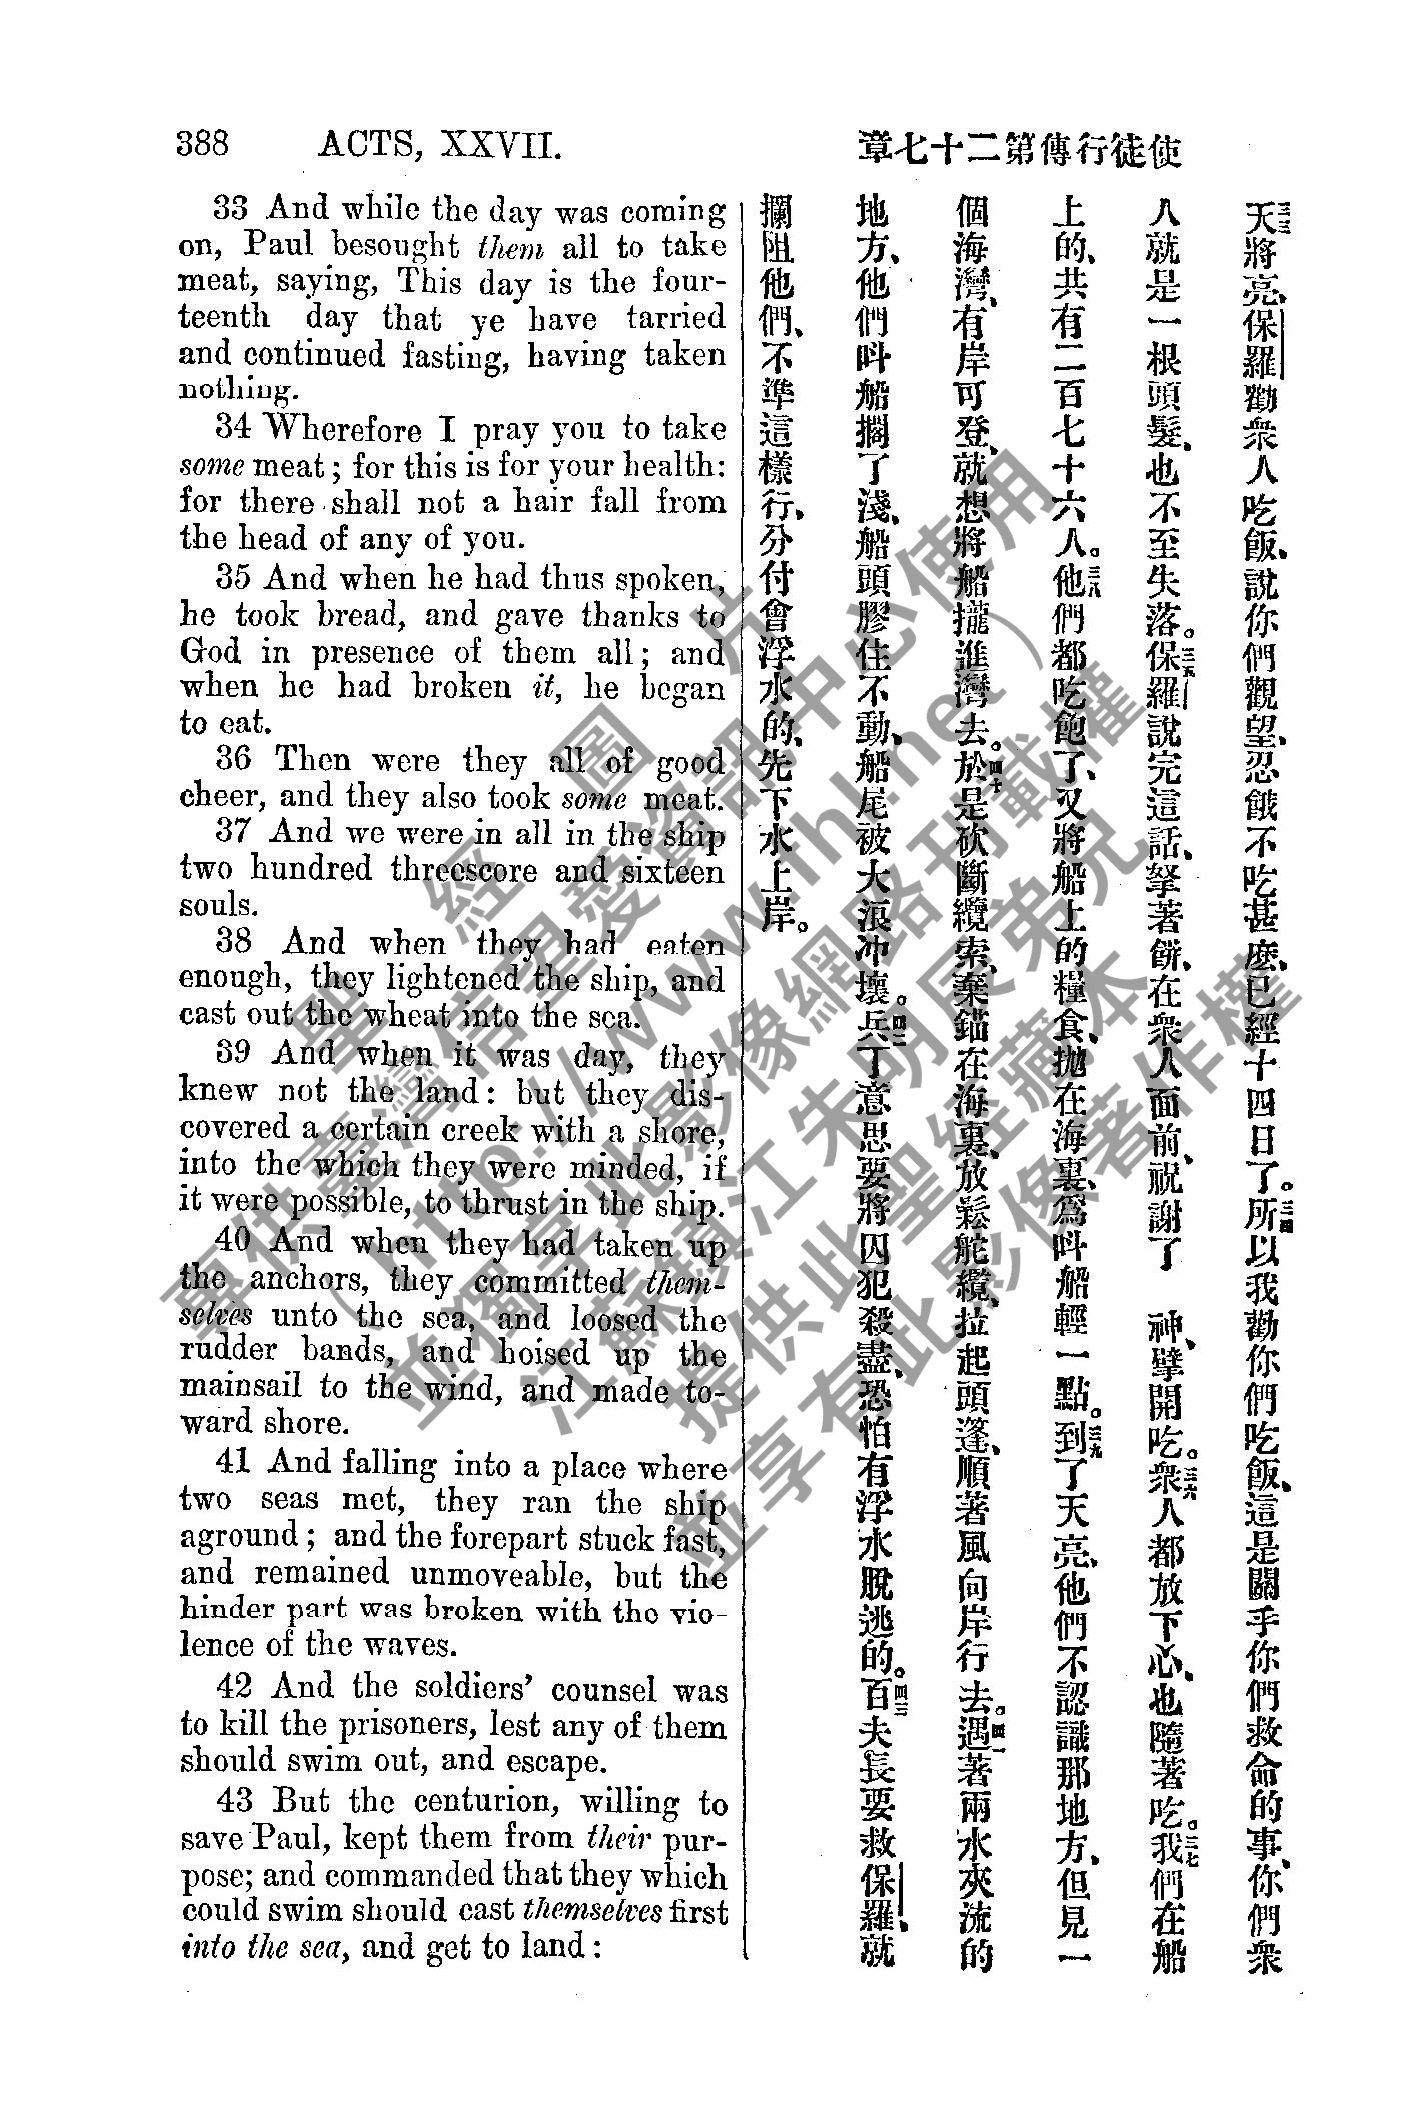 388 ACTS, XXVII.
使徒行傳第二十七章
33 And while the day was coming
on, Paul besought them all to take
meat, saying, This day is the four-
teenth day that ye have tarried
and continued fasting, having taken
nothing.
34 Wherefore I pray you to take
some meat; for this is for your health:
for there shall not a hair fall from
the head of any of you.
35 And when he had thus spoken,
he took bread, and gave thanks to
God in presence of them all; and
when he had broken it, he began
to eat.
36 Then were they all of good
cheer, and they also took some meat.
37 And we were in all in the ship
two hundred threescore and sixteen
souls.
38 And when they had eaten
enough, they lightened the ship, and
cast out the wheat into the sea.
39 And when it was day, they
knew not the land: but they dis-
covered a certain creek with a shore,
into the which they were minded, if
it were possible, to thrust in the ship.
40 And when they had taken up
the anchors, they committed them-
selves unto the sea, and loosed the
rudder bands, and hoised up the
mainsail to the wind, and made to-
ward shore.
41 And falling into a place where
two seas met, they ran the ship
aground; and the forepart stuck fast,
and remained unmoveable, but the
hinder part was broken with the vio-
lence of the waves.
42 And the soldiers' counsel was
to kill the prisoners, lest any of them
should swim out, and escape.
43 But the centurion, willing to
save Paul, kept them from their pur-
pose; and commanded that they which
could swim should cast themselves first
into the sea, and get to land:
三三天將亮、保羅勸衆人吃飯、說你們觀望、忍餓不吃甚麽、已經十四日了。三四所以我勸你們吃飯、這是關乎你們救命的事、你們衆
人就是一根頭髮、也不至失落。三五保羅說完這話、拏著餅、在衆人面前、祝謝了 神、擘開吃。三六衆人都放下心、也隨著吃。三七我們在船
上的、共有二百七十六人。三八他們都吃飽了、又將船上的糧食、拋在海裏、爲呌船輕一點。三九到了天亮、他們不認識那地方、但見一
個海灣、有岸可登、就想將船攏進灣去。四十於是砍斷纜索、棄錨在海裏、放鬆舵纜、拉起頭篷、順著風向岸行去。四一遇著兩水夾流的
地方、他們呌船擱了淺、船頭膠住不動、船尾被大浪冲壞。四二兵丁意思要將囚犯殺盡、恐怕有浮水脫逃的。四三百夫長要救保羅、就
攔阻他們、不準這樣行、分付會浮水的、先下水上岸。
聖經圖片
專供臺灣信望愛資訊中心使用
（http://www.fhl.net）
並獨享此影像網路刊載權
江蘇鎮江朱明辰弟兄
提供此聖經藏本
並享有此影像著作權